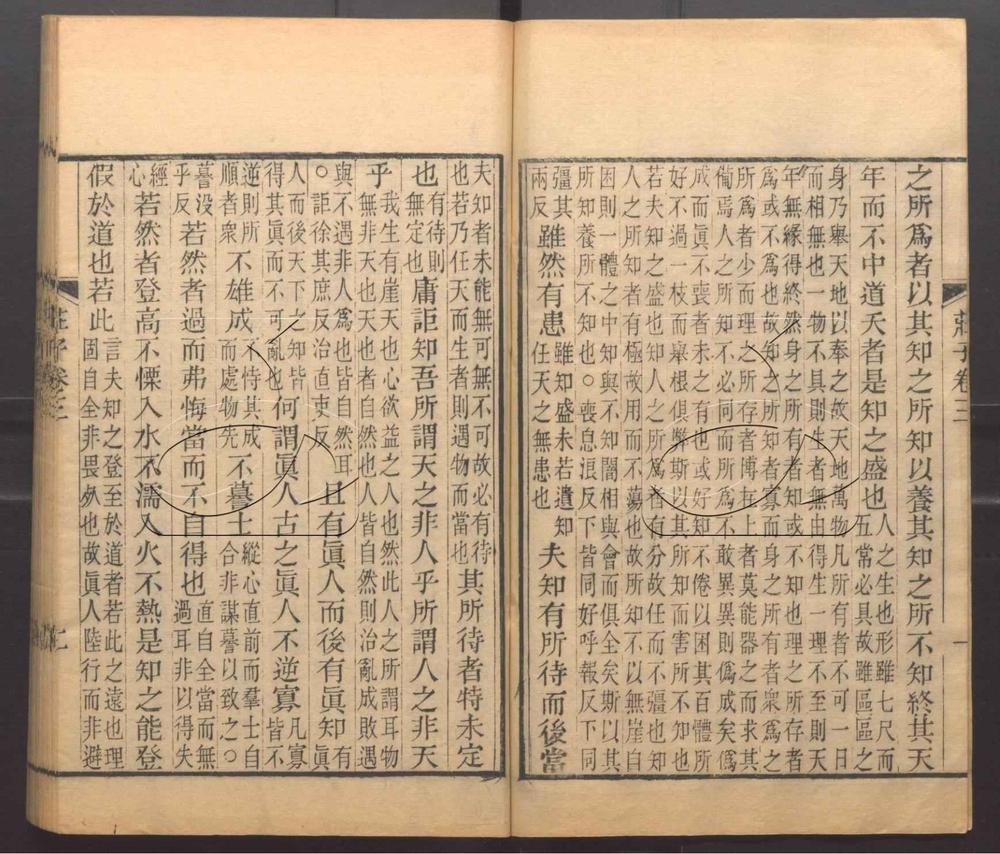 莊子卷三
之所爲者以其知之所知以養其知之所不知終其天
年而不中道夭者是知之盛也人之生也形雖七尺而五常必具故雖區區之
身乃舉天地以奉之故天地萬物凡所有者不可一日
而相無也一物不具則生者無由得生一理不至則天
年無緣得終然身之所有者知或不知也理之所存者
爲或不爲也故知之所知者寡而身之所有者衆爲之
所爲者少而理之所存者博在上者莫能器之而求其
備焉人之所知不必同而所爲不敢異異則僞成矣僞
成而眞不喪者未之有也或好知而不倦以困其百體所
好不過一枝而舉根俱弊斯以其所知而害所不知也
若夫知之盛也知人之所爲者有分故任而不彊也知
人之所知者有極故用而不蕩也故所知不以無崖自
困則一體之中知與不知闇相與會而俱全矣斯以其
所知養所不知也○喪息浪反下皆同好呼報反下同
彊其兩反雖然有患雖知盛未若遺知任天之無患也夫知有所待而後當
夫知者未能無可無不可故必有待也若乃任天而生者則遇物而當也其所待者特未定
也有待則無定也庸詎知吾所謂天之非人乎所謂人之非天
乎我生有崖天也心欲益之人也然此人之所謂耳物無非天也天也者自然也人皆自然則治亂成敗遇
與不遇非人爲也皆自然耳○詎徐其庶反治直吏反且有眞人而後有眞知有眞
人而後天下之知皆得其眞而不可亂也何謂眞人古之眞人不逆寡凡寡皆不
逆則所順者衆不雄成不恃其成而處物先不謩士縱心直前而羣士自合非謀謩以致之○
謩沒乎反若然者過而弗悔當而不自得也直自全當而無過耳非以得失
經心若然者登高不慄入水不濡入火不熱是知之能登
假於道也若此言夫知之登至於道者若此之遠也理固自全非畏死也故眞人陸行而非避
莊子卷三